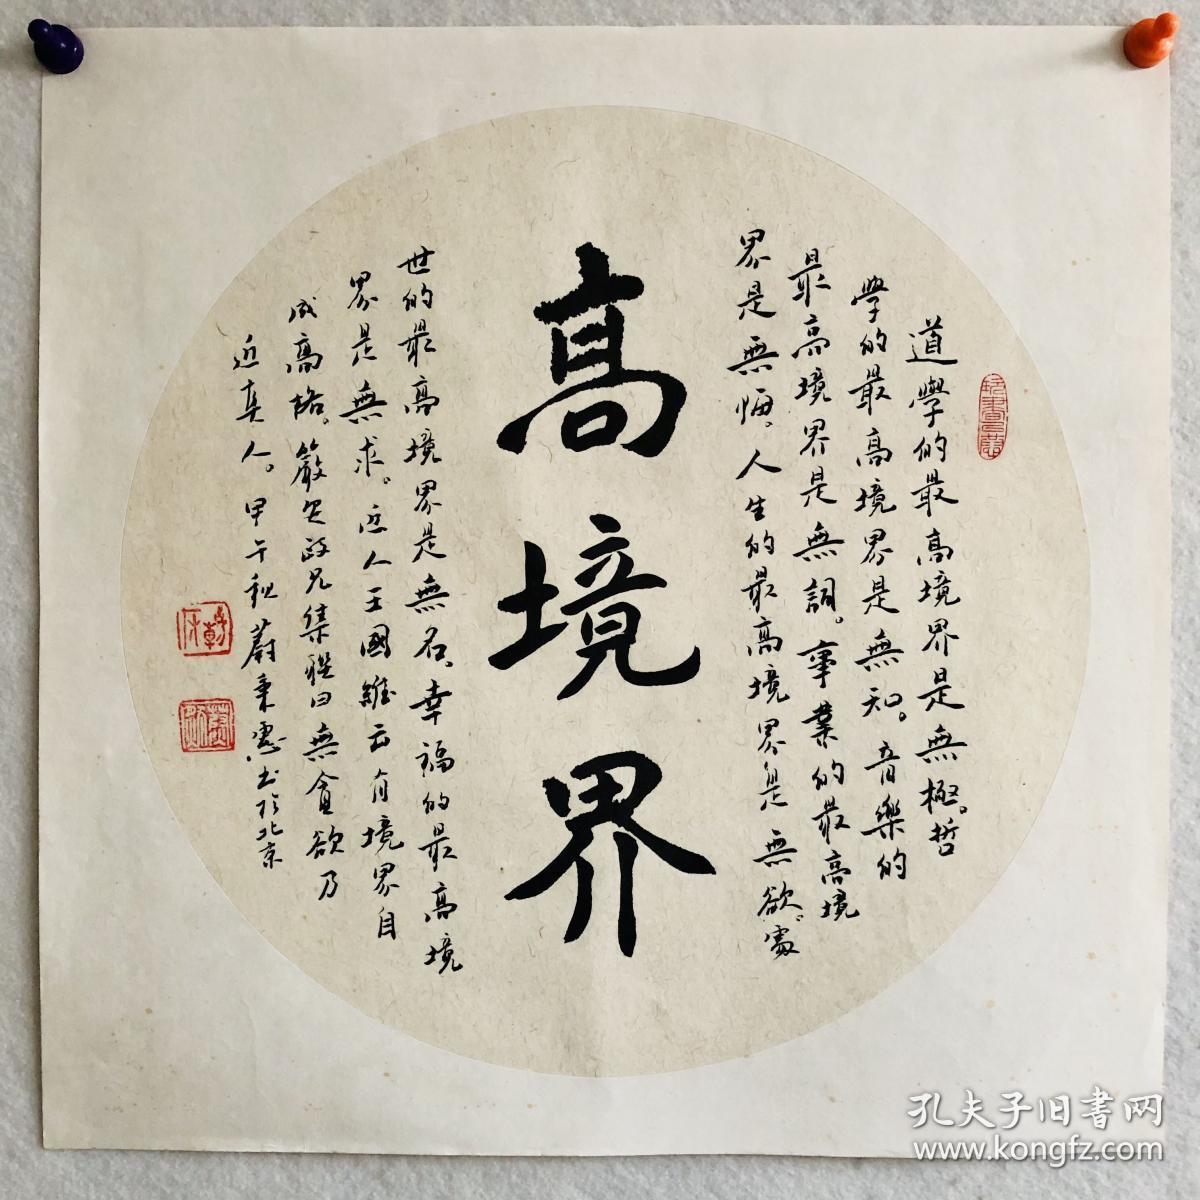 道學的最高境界是無極。哲
學的最高境界是無知。音樂的
最高境界是無詞。事業的最高境
界是無悔。人生的最高境界是無欲。處
高境界
世的最高境界是無名。幸福的最高境
界是無求。近人王國維云有境界自
成高格。嚴老政兄集聯曰無貪欲乃
近真人。甲午秋蔚秉惠书於北京
孔夫子旧書网
www.kongfz.com